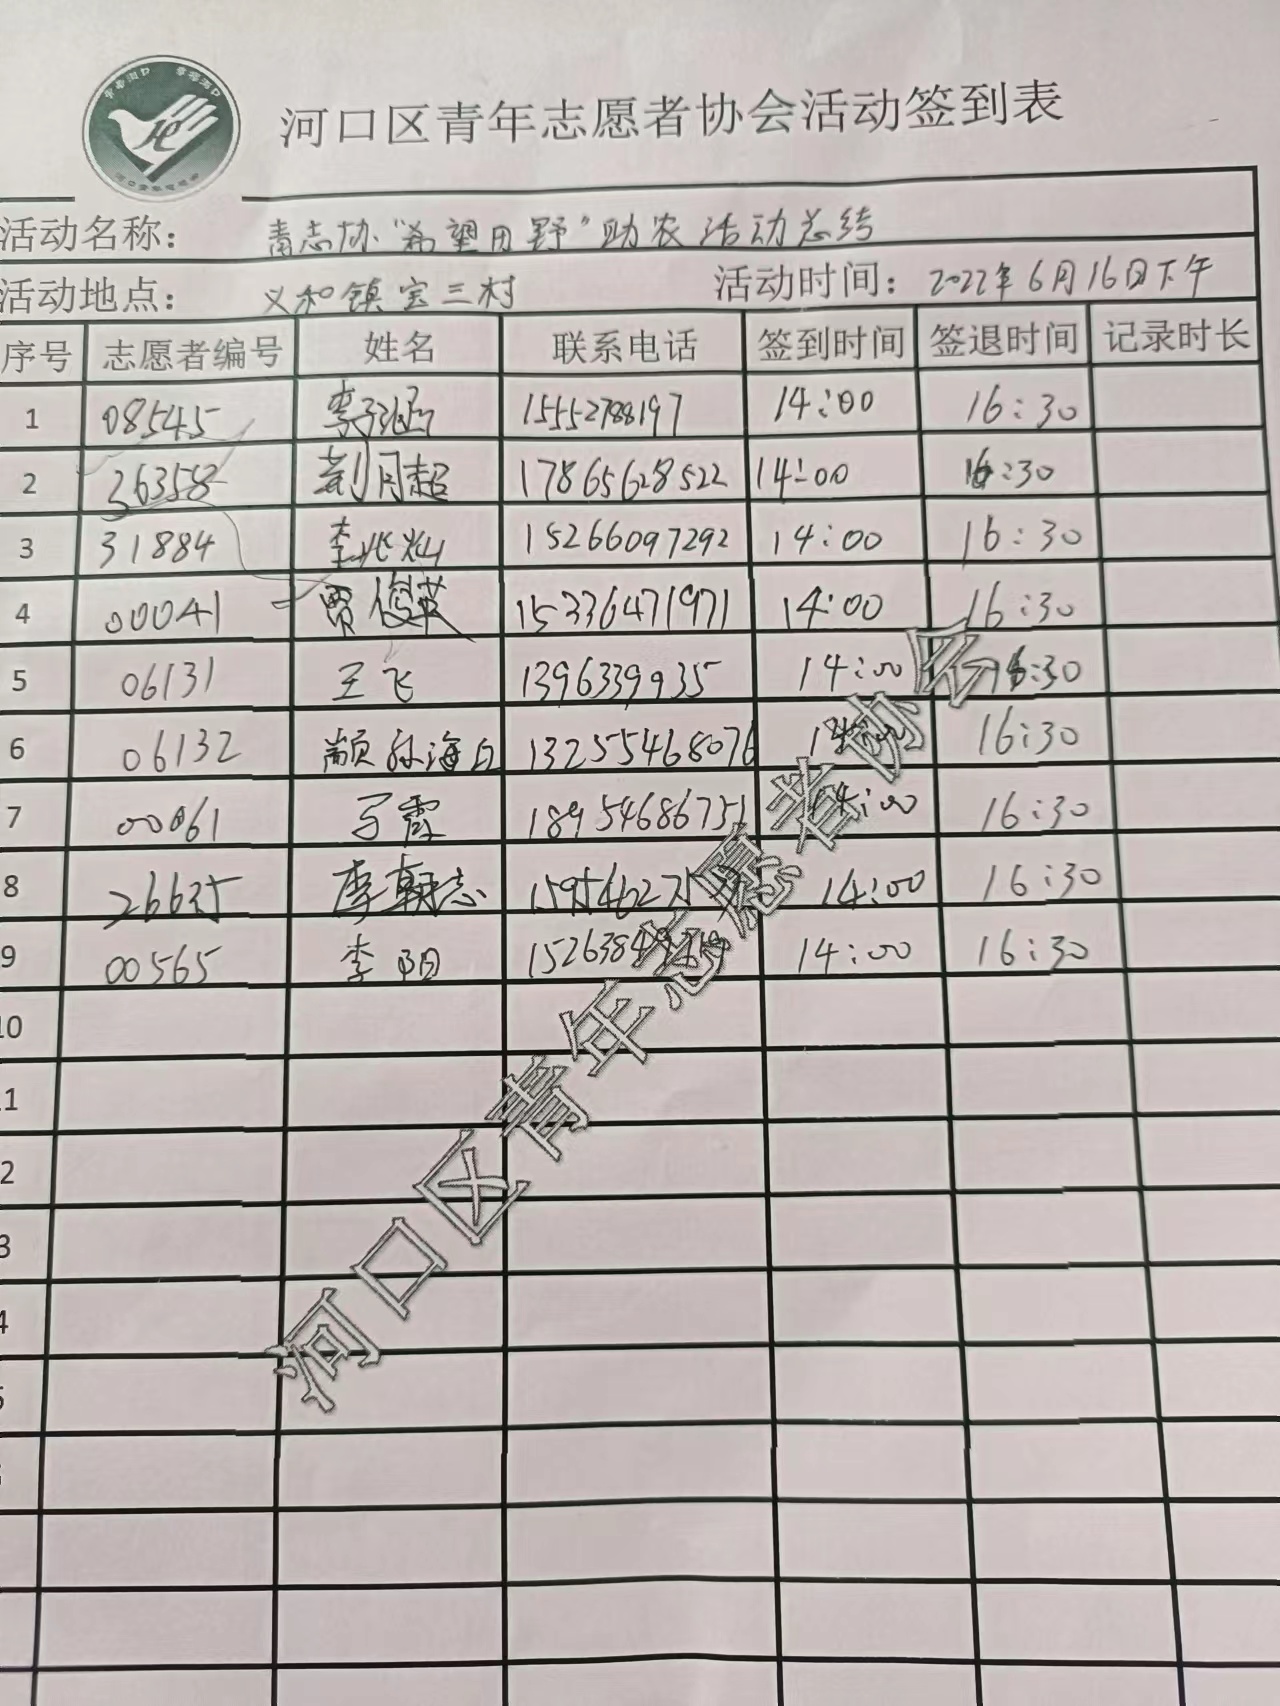 河口区青年志愿者协会活动签到表
活动名称： 青志协“希望田野”助农活动总结
活动地点： 义和镇宝三村 活动时间： 2022年6月16日下午
序号 志愿者编号 姓名 联系电话 签到时间 签退时间 记录时长
1 08545 李子涵 15552788197 14:00 16:30
2 36358 荆月超 17865628522 14:00 16:30
3 31884 李兆灿 15266097292 14:00 16:30
4 00041 贾俊英 15336471971 14:00 16:30
5 06131 王飞 1396339935 14:00 16:30
6 06132 颛孙海丘 13255468076 16:30
7 00061 马霞 18954686751 14:00 16:30
8 26635 李朝志 14:00 16:30
9 00565 李阳 14:00 16:30
10
河口区青年志愿者协会